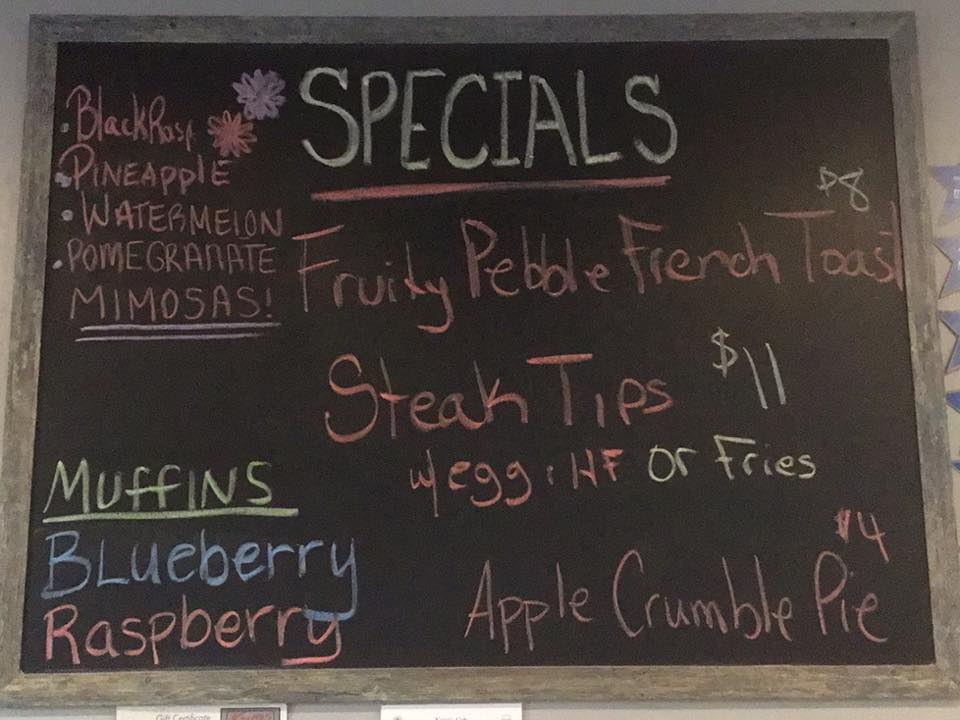 SPECIALS
BlackRasp
PINEAPPLE
WATERMELON
POMEGRANATE
MIMOSAS!
$8
Fruity Pebble French Toast
Steak Tips $11
w/egg + HF or Fries
$4
Apple Crumble Pie
MUFFINS
BLueberry
Raspberry
Gift Certificate